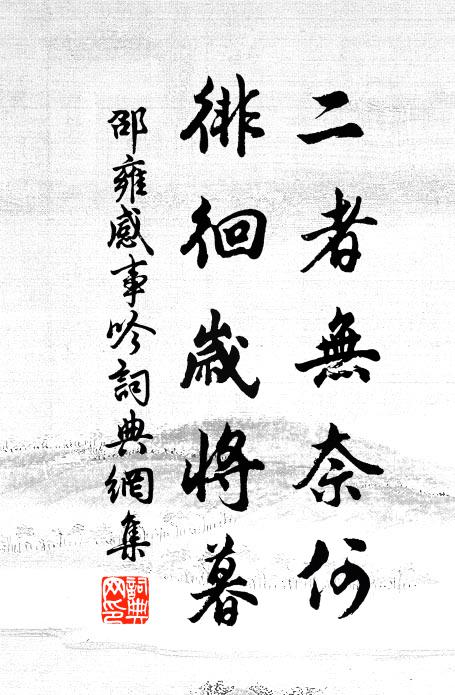 二者無奈何
徘徊歲將暮
邵雍感事吟詞典網集
詞典
网印